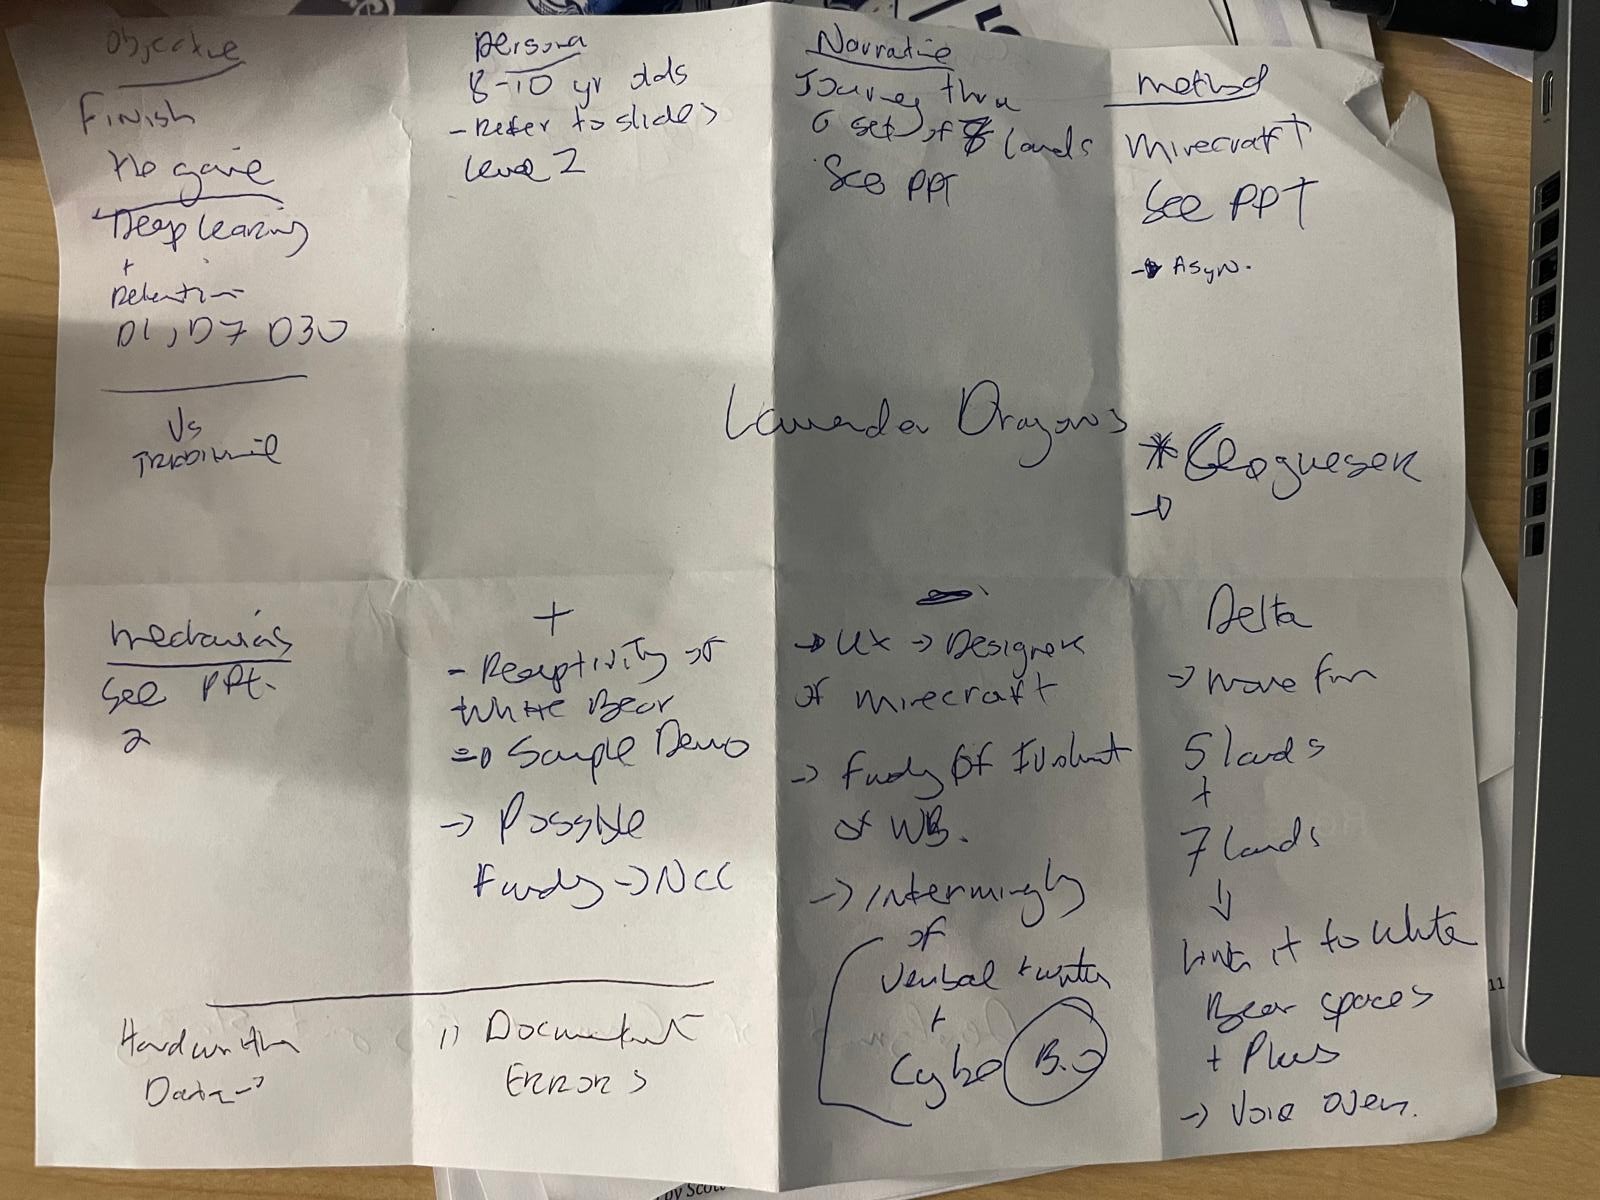 Objective
Finish
the game
Deep Learning
+
Retention
D1, D7 D30
Vs
persona
8-10 yr olds
- Refer to slides
Level 2
Narrative
Journey thru
set of lands
See PPT
method
Minecraft
See PPT
→ Asyn.
Lavender Dragons
* Geoguesser
→
mechanics
See PPt.
2
+
- Receptivity of
White Bear
⇒ Sample Demo
→ Possible
Fundg → NCC
→ UX → Designer
of minecraft
→ Fundg of
of WB.
→ Intermingly
of
Verbal + written
+
Cyber B.
Delta
→ more fun
5 lands
+
7 lands
↓
Link it to White
Bear spaces
+ Plus
→ Voie over.
Handwritten
Data →
11 Document
ERRORS
11
by Scott